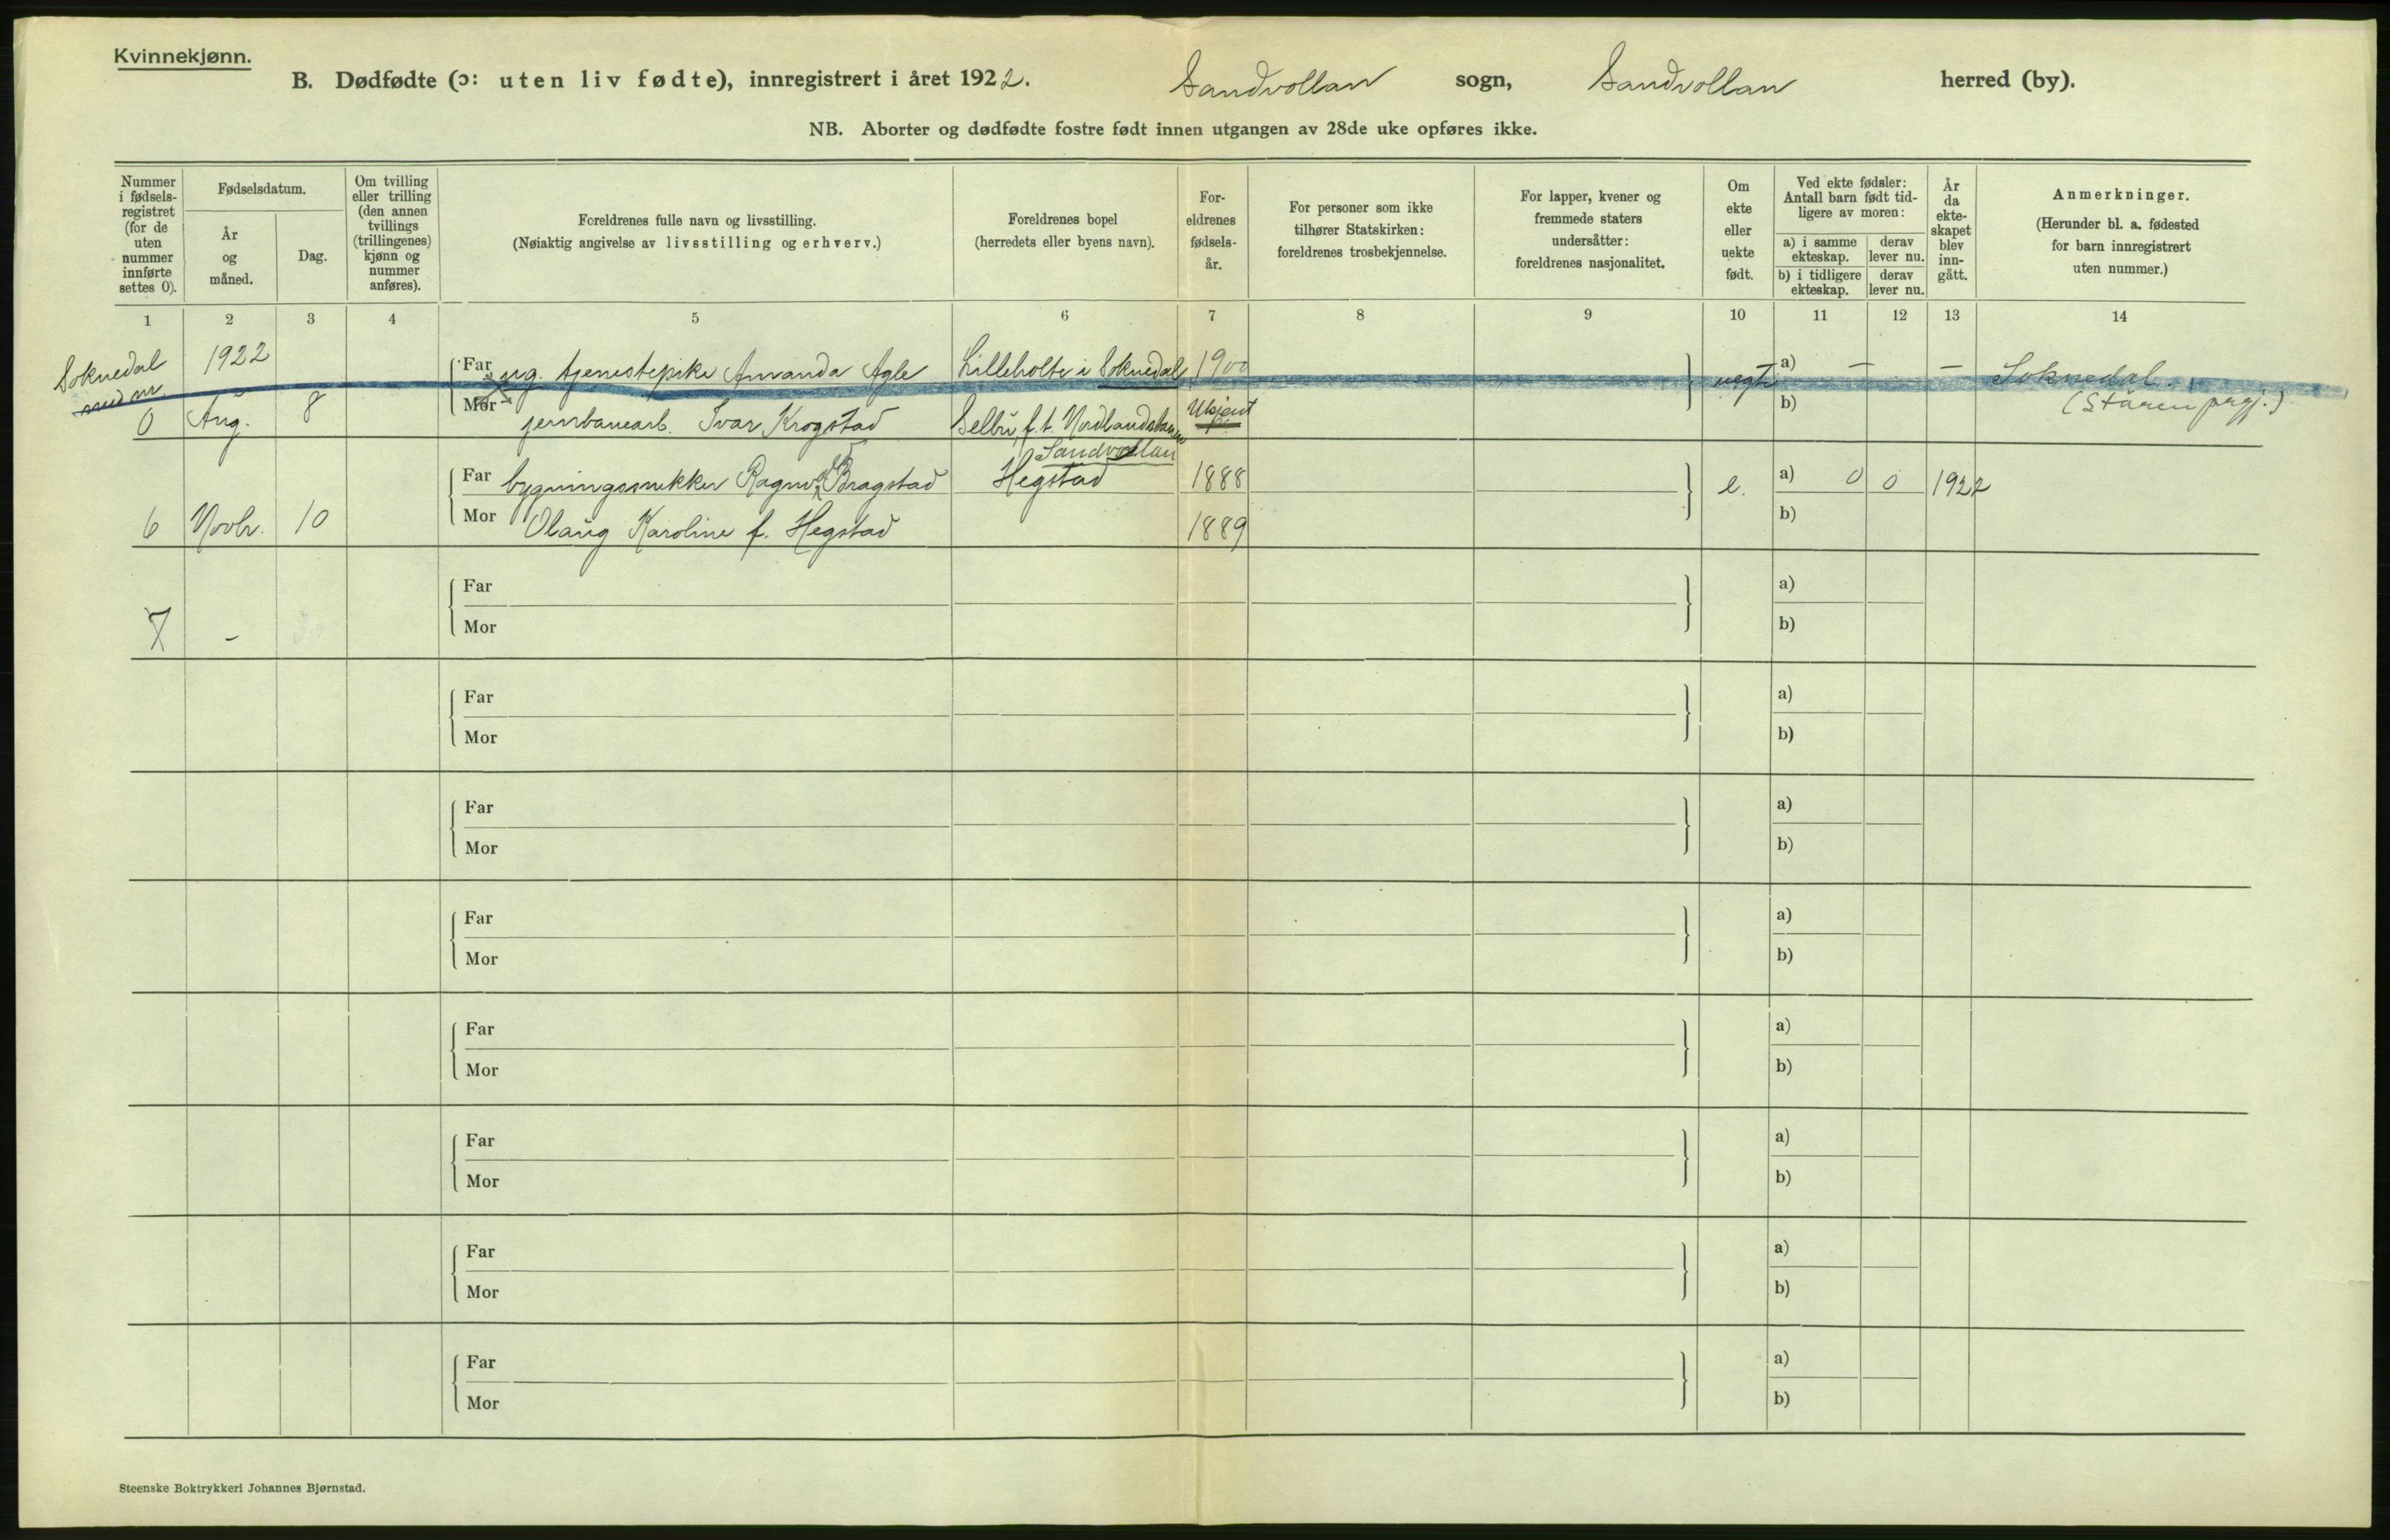 Kvinnekjønn.
B. Dødfødte (ɔ: uten liv fødte), innregistrert i året 1922. Sandvollan sogn, Sandvollan herred (by).
NB. Aborter og dødfødte fostre født innen utgangen av 28de uke opføres ikke.
Nummer i fødsels-registret (for de uten nummer innførte settes 0).
Fødselsdatum.
År og måned.
Dag.
Om tvilling eller trilling (den annen tvillings (trillingenes) kjønn og nummer anføres).
Foreldrenes fulle navn og livsstilling.
(Nøiaktig angivelse av livsstilling og erhverv.)
Foreldrenes bopel
(herredets eller byens navn).
For-eldrenes fødsels-år.
For personer som ikke tilhører Statskirken: foreldrenes trosbekjennelse.
For lapper, kvener og fremmede staters undersåtter: foreldrenes nasjonalitet.
Om ekte eller uekte født.
Ved ekte fødsler: Antall barn født tid-ligere av moren:
a) i samme ekteskap.
derav lever nu.
b) i tidligere ekteskap.
derav lever nu.
År da ekte-skapet blev inn-gått.
Anmerkninger.
(Herunder bl. a. fødested for barn innregistrert uten nummer.)
1 2 3 4 5 6 7 8 9 10 11 12 13 14
Soknedal 1922
Far ug. tjenestepike Amanda Agle Lilleholte i Soknedal 1900 uegte a) — — Soknedal.
0 Aug. 8 Mor jernbanearb. Ivar Krogstad Selbu, f. t. Nordlandsbanen Ukjent b) (Støren prgj.)
Sandvollan
Far bygningssnekker Ragnv. Bragstad Hegstad 1888 e. a) 0 0 1922
6 Novbr. 10 Mor Olaug Karoline f. Hegstad 1889 b)
Far a)
7 - Mor b)
Far a)
Mor b)
Far a)
Mor b)
Far a)
Mor b)
Far a)
Mor b)
Far a)
Mor b)
Far a)
Mor b)
Far a)
Mor b)
Steenske Boktrykkeri Johannes Bjørnstad.